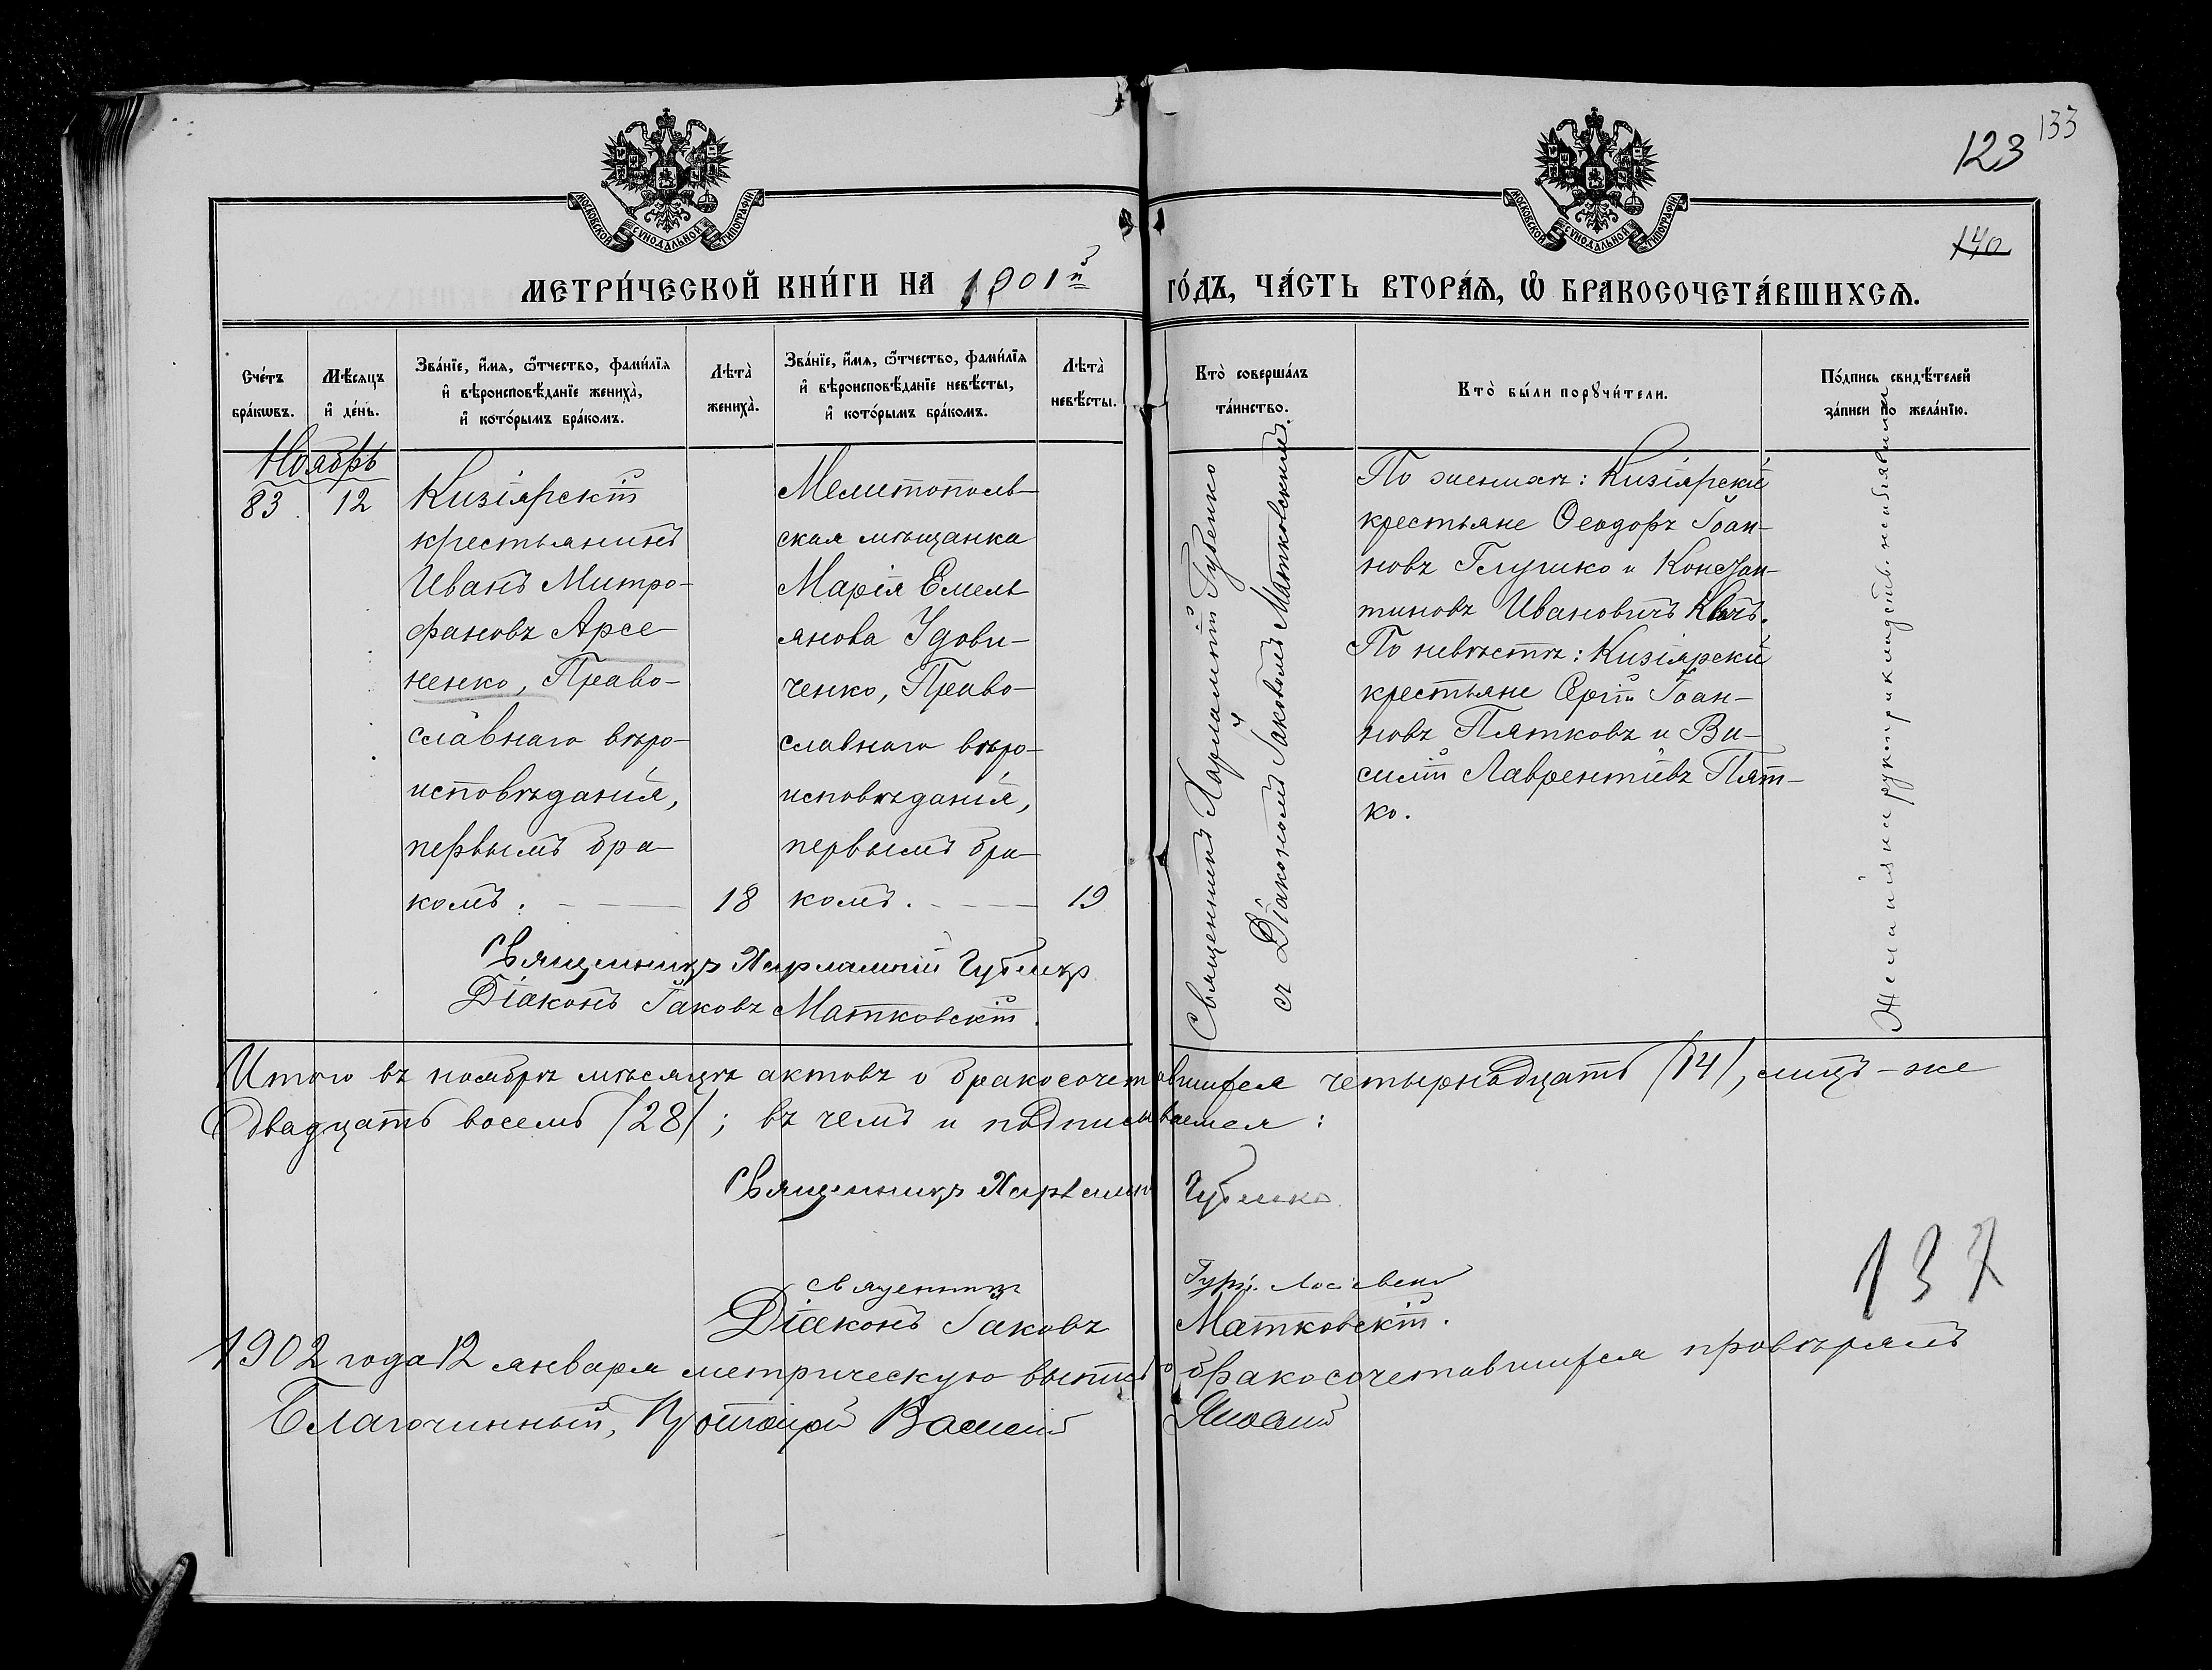 133
123
140
МОСКОВСКОЙ СѴНОДАЛЬНОЙ ТИПОГРАФІИ
МОСКОВСКОЙ СѴНОДАЛЬНОЙ ТИПОГРАФІИ
МЕТРИ́ЧЕСКОЙ КНИ́ГИ НА 1901й ГО́ДЪ, ЧА́СТЬ ВТОРА́Ѧ, Ѡ БРАКОСОЧЕТА́ВШИХСѦ.
Сче́тъ
бра́кѡвъ.
Мѣ́сѧцъ
и҆ де́нь.
Зва́нїе, и҆́мѧ, ѻ҆́тчество, фами́лїѧ
и҆ вѣроисповѣ́данїе жениха̀,
и҆ кото́рымъ бра́комъ.
Лѣта̀
жениха̀.
Зва́нїе, и҆́мѧ, ѻ҆́тчество, фами́лїѧ
и҆ вѣроисповѣ́данїе невѣ́сты,
и҆ кото́рымъ бра́комъ.
Лѣта̀
невѣ́сты.
Кто̀ соверша́лъ
та́инство.
Кто̀ бы́ли порꙋчи́тели.
По́дпись свидѣ́телей
за́писи по жела́нїю.
Ноябрь
83.
12
Кизіярскій
крестьянинъ
Иванъ Митро-
фановъ Арсе-
ненко, Право-
славнаго вѣро-
исповѣданія,
первымъ бра-
комъ.
18
Мелитополь-
ская мѣщанка
Марія Емель
янова Удови-
ченко, Право-
славнаго вѣро-
исповѣданія,
первымъ бра-
комъ.
19
Священникъ Харлампій Губенко
съ Діакономъ Іаковомъ Матковскимъ.
По женихѣ: Кизіярскіе
крестьяне Ѳеодоръ Іоан-
новъ Глушко и Констан-
тиновъ Ивановичъ
По невѣстѣ: Кизіярскіе
крестьяне Сергій Іоан-
новъ Пятковъ и Ва-
силій Лаврентіевъ Пят-
ко.
Желанія на рукоприкладств. не изъявили
Священникъ Харлампій Губенко
Діаконъ Іаковъ Матковскій.
Итого въ ноябрѣ мѣсяцѣ актовъ о бракосочетавшихся четырнадцать /14/, лицъ-же
двадцать восемь /28/; въ чемъ и подписываемся:
Священникъ Харлампій Губенко
Священникъ Гурій
Діаконъ Іаковъ Матковскій.
137
1902 года 12 января метрическую выпись о бракосочетавшихся провѣрялъ
Благочинный, Протоіерей Василій